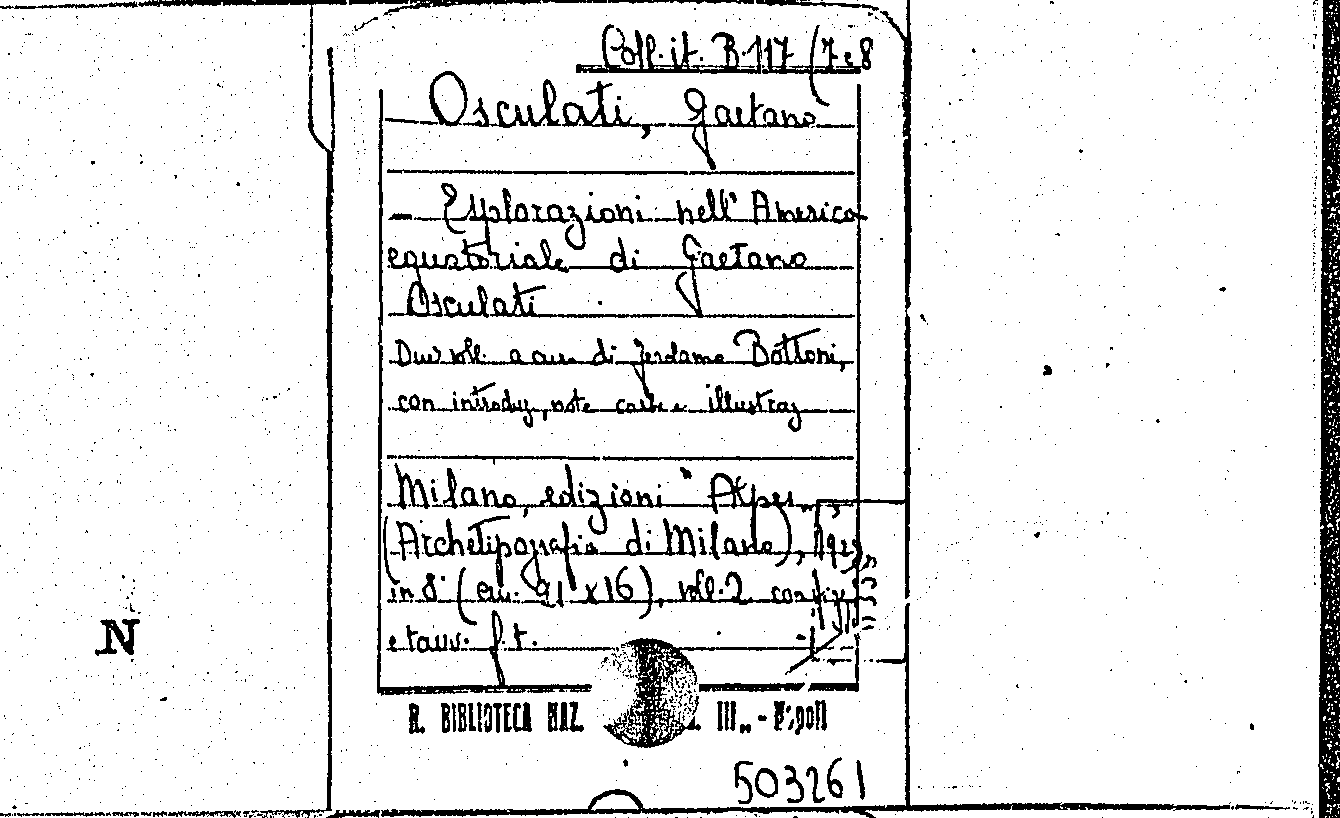 Coll. it. B. 117 (7 e 8
Osculati, Gaetano
— Esplorazioni nell'America
equatoriale di Gaetano
Osculati
Due voll. a cura di Bottoni,
con introduz, note carte e illustraz
Milano, edizioni "Alpes",
(Archetipografia di Milano),
in 8° (cm. 21 x 16), voll. 2 con fig
e tavv. f. t.
N
R. BIBLIOTECA NAZ. III. - Napoli
503261